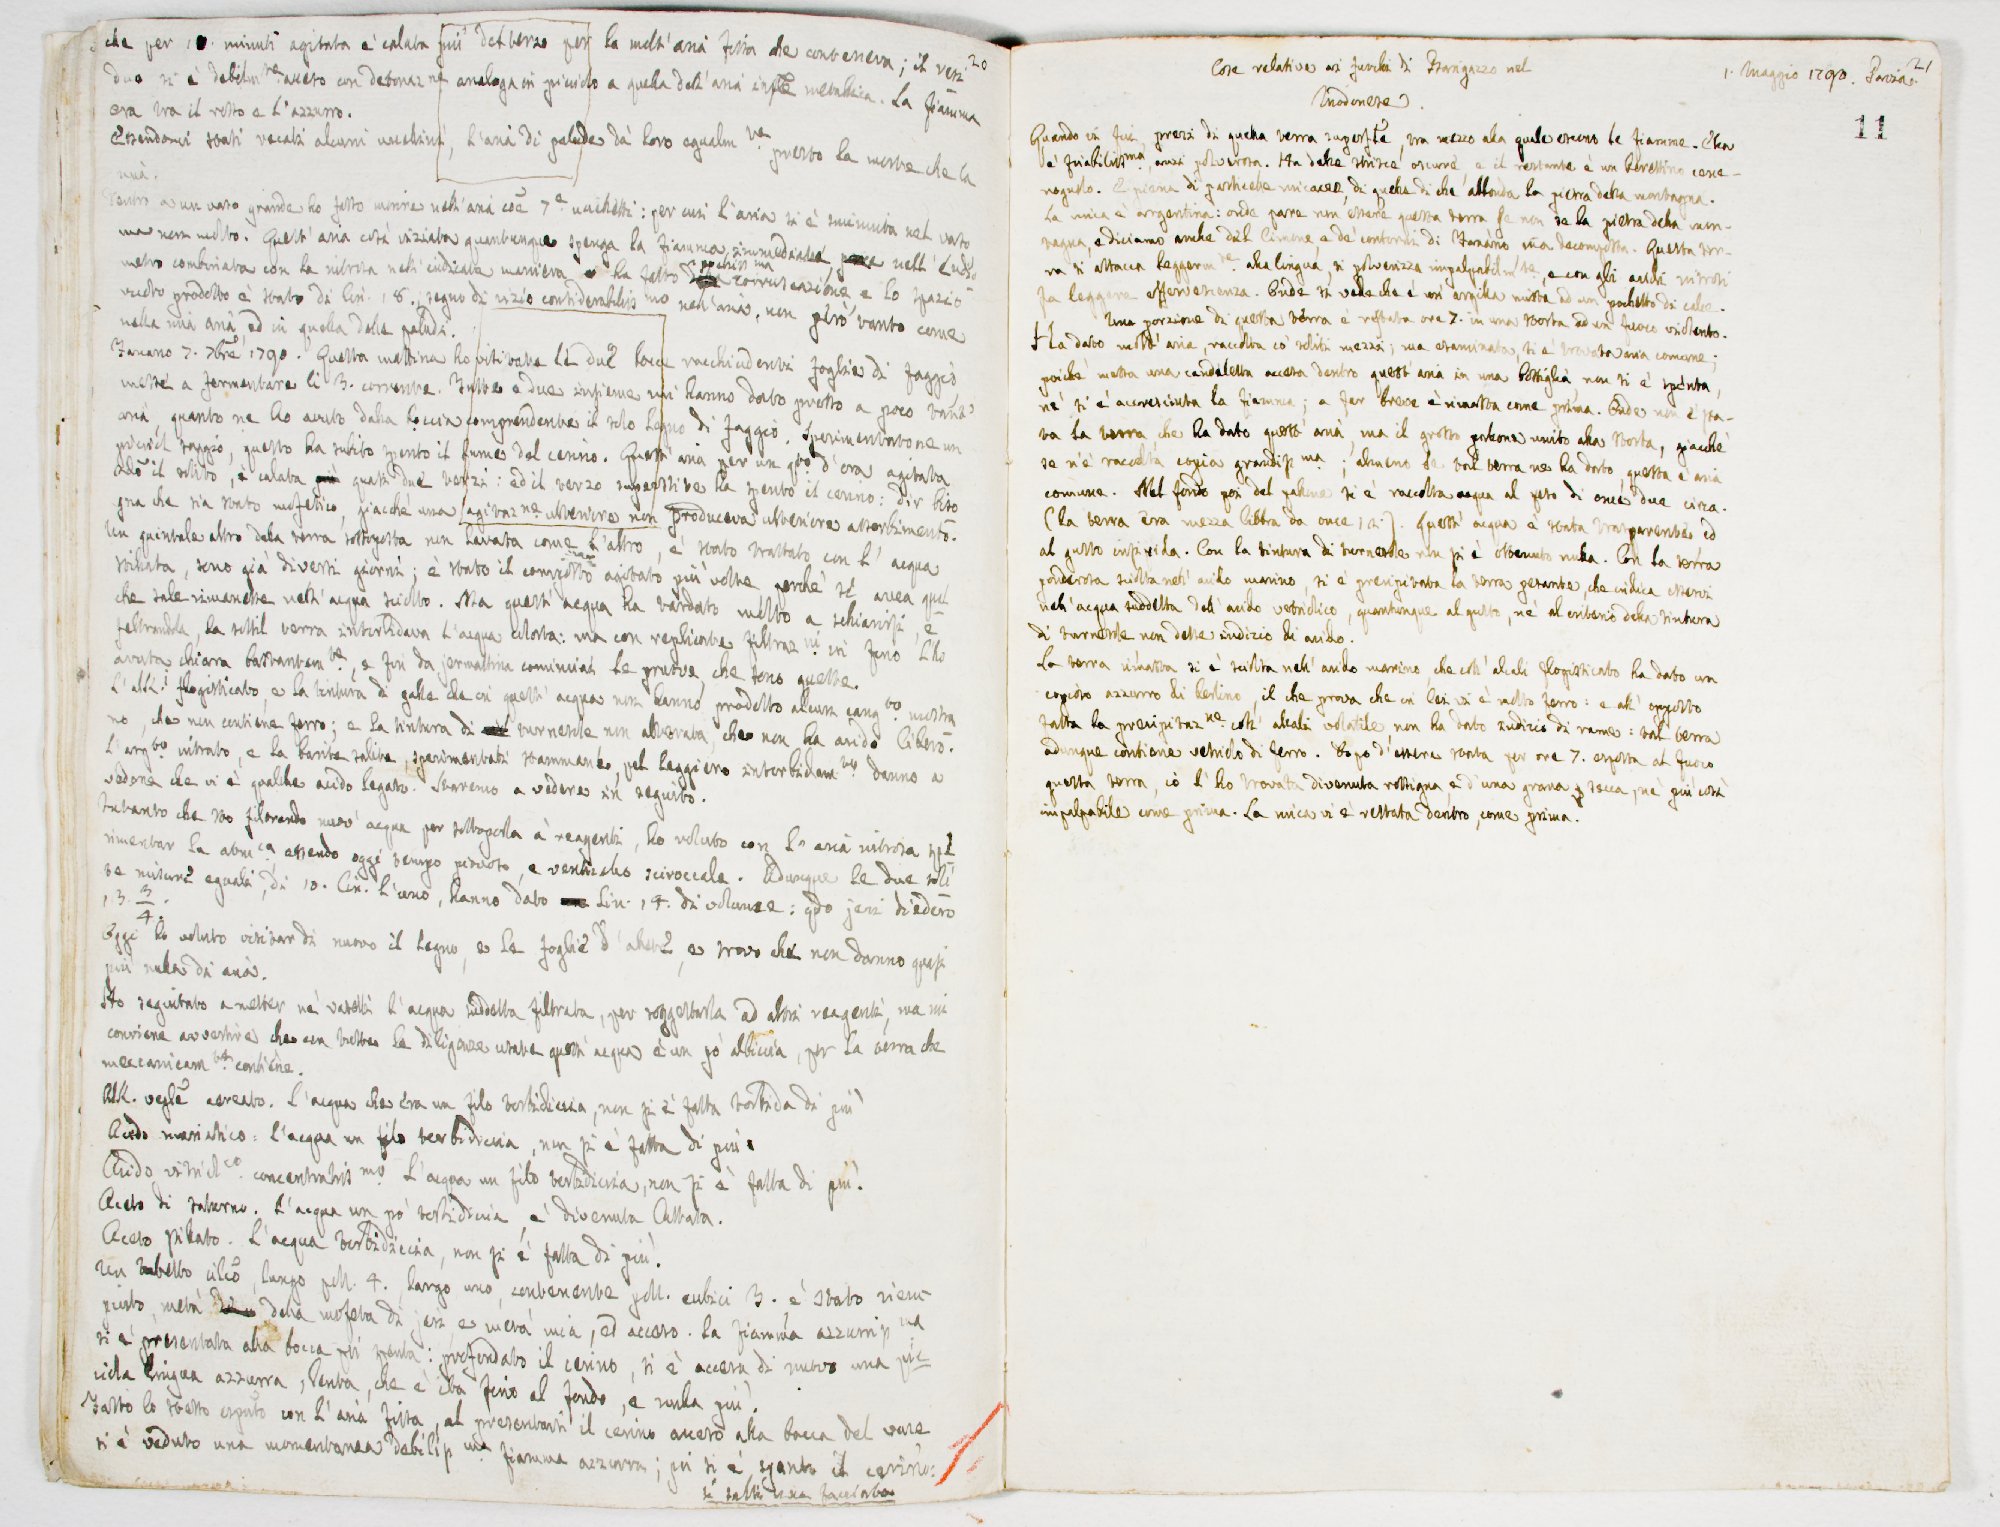 20
che per 10. minuti agitata è calata più del terzo per la molt'aria fissa che conteneva; il resi
duo si è debilm.te acceso con detonaz.ne analoga in piccolo a quella dell'aria inf.le metallica. La fiamma
era tra il rosso e l'azzurro.
Essendomi stati recati alcuni uccelini, l'aria di palude dà loro egualm.te presto la morte che la
mia.
Dentro a un vaso grande ho fatto morire nell'aria coe 7.e uccelletti: per cui l'aria si è sminuita nel vaso
ma non molto. Quest'aria così viziata quantunque spenga la fiamma immediate, nell'Eudio
metro combinata con la nitrosa nell'indicata maniera ha fatto pochiss.ma corruscazione, e lo spazio
vuoto prodotto è stato di lin. 18., segno di vizio considerabiliss.mo nell'aria, non però tanto come
nella mia aria ed in quella delle paludi.
Fanano 7. 7bre 1790. Questa mattina ho visitate le due bocce racchiudenti foglie di faggio
messe a fermentare li 3. corrente. Tutte e due insieme mi hanno dato presso a poco tant'
aria, quanto ne ho avuto dalla boccia comprendente il solo legno di faggio. Sperimentatone un
piccol saggio, questo ha subito spento il lume del cerino. Quest'aria per un q.to d'ora agitata
al solito, è calata quasi due terzi: ed il terzo superstite ha spento il cerino: dir biso
gna che sia stato mofetico, giacché una agitaz.ne ulteriore non produceva ulteriore assorbimento.
Un quintale altro della terra sottoposta non lavata come l'altro, è stato trattato con l'acqua
stillata, sono già diversi giorni; è stato il composto agitato più volte perché se avea qual
che sale rimanesse nell'acqua sciolto. Ma quest'acqua ha tardato molto a schiarirsi, e
feltrandola, la sottil terra intorbidava l'acqua colata: ma con replicate filtraz.ni in fino l'ho
avuta chiara bastantem.te, e fin da jermattina cominciai le prove, che sono queste.
L'alk. flogisticato, e la tintura di galle che in quest'acqua non hanno prodotto alcun cang.to mostra
no, che non contiene ferro; e la tintura di turnesole non alterata, che non ha acido libero.
L'arg.to nitrato, e la barite salita, sperimentati stammane, pel leggiero intorbidam.to danno a
vedere che vi è qualche acido legato. Staremo a vedere in seguito.
Intanto che sto filtrando nuov'acqua per sottoporla a' reagenti, ho voluto con l'aria nitrosa spe
rimentar la atm.ca essendo oggi tempo piovoso, e venticello sciroccale. Adunque le due soli
te misure eguali, di 10. lin. l'uno, hanno dato lin. 14. di volume: qdo jeri diedero
13. 3/4.
Oggi ho voluto visitar di nuovo il legno, e le foglie d'abete, e trovo che non danno quasi
più nulla di aria.
Ho seguitato a metter ne' vaselli l'acqua suddetta filtrata, per soggettarla ad altri reagenti, ma mi
conviene avvertire che con tutte le diligenze usate quest'acqua è un pò albiccia, per la terra che
meccanicam.te contiene.
Alk. vegle aereato. L'acqua che era un filo torbidiccia, non si è fatta torbida di più
Acido muriatico: l'acqua un filo torbidiccia, non si è fatta di più.
Acido vitriol.co concentratiss.mo L'acqua un filo torbidiccia, non si è fatta di più.
Aceto di saturno. L'acqua un pò torbidiccia, è divenuta lattata.
Aceto stillato. L'acqua torbidiccia, non si è fatta di più.
Un tubetto cilco, lungo poll. 4., largo uno, contenente poll. cubici 3. è stato riem
piuto, metà della mofeta di jeri, e metà mia, ed acceso. La fiamma azzurriss.ma
si è presentata alla bocca poi spenta: profondato il cerino, si è accesa di nuovo una pic
ciola lingua azzurra, lenta, che è ita fino al fondo, e nulla più.
Fatto lo stesso esp.to con l'aria fissa, al presentarsi il cerino acceso alla bocca del vase
si è veduto una momentanea debiliss.ma fiamma azzurra; poi si è spento il cerino:
21
11
Cose relative ai fuochi di Barigazzo nel
1. Maggio 1790. Pavia.
Modonese.
Quando ivi fui, presi di quella terra superfle, tra mezzo alla quale escono le fiamme. Ella
è friabilissma, anzi polverosa. Ha delle strisce oscure, e il restante è un berettino cene-
rognolo. È piena di particelle micacee, di quelle di che abbonda la pietra della montagna.
La mica è argentina: onde pare non essere questa terra se non se la pietra della mon-
tagna, e diciamo anche del Cimone e de' contorni di Fanano ma decomposta. Questa ter-
ra si attacca leggerm.te alla lingua, si polverizza impalpabilm.te, e con gli acidi nitrosi
fa leggere effervescenza. Onde si vede che è un'argilla mista ad un pochetto di calce.
Una porzione di questa terra è restata ore 7. in una storta ad un fuoco violento.
Ha dato molt'aria, raccolta co' soliti mezzi; ma esaminata, si è trovata aria comune;
poiché messa una candeletta accesa dentro quest'aria in una bottiglia non si è spenta,
né si è accresciuta la fiamma; a far breve è rimasta come prima. Onde non è sta-
ta la terra che ha dato quest'aria, ma il grosso pallone unito alla storta, giacché
se n'è raccolta copia grandiss.ma; almeno se tal terra ne ha dato, questa è aria
comune. Nel fondo poi del pallone si è raccolta acqua al peso di once due circa.
(la terra era mezza libbra da once 12). Quest'acqua è stata trasparente, ed
al gusto insipida. Con la tintura di turnesole non si è ottenuto nulla. Con la terra
ponderosa sciolta nell'acido marino, si è precipitata la terra pesante, che indica esservi
nell'acqua suddetta dell'acido vetriolico, quantunque al gusto, né al criterio della tintura
di turnesole non desse indizio di acido.
La terra rimasta si è sciolta nell'acido marino, che coll'alcali flogisticato ha dato un
copioso azzurro di berlino, il che prova che in lei vi è molto ferro: e all'opposto
fatta la precipitaz.ne coll'alcali volatile non ha dato indizio di rame: tal terra
adunque contiene vetriolo di ferro. Dopo d'essere stata per ore 7. esposta al fuoco
questa terra, io l'ho trovata divenuta rossigna, e d'una grana secca, né più così
impalpabile come prima. La mica vi è restata dentro, come prima.